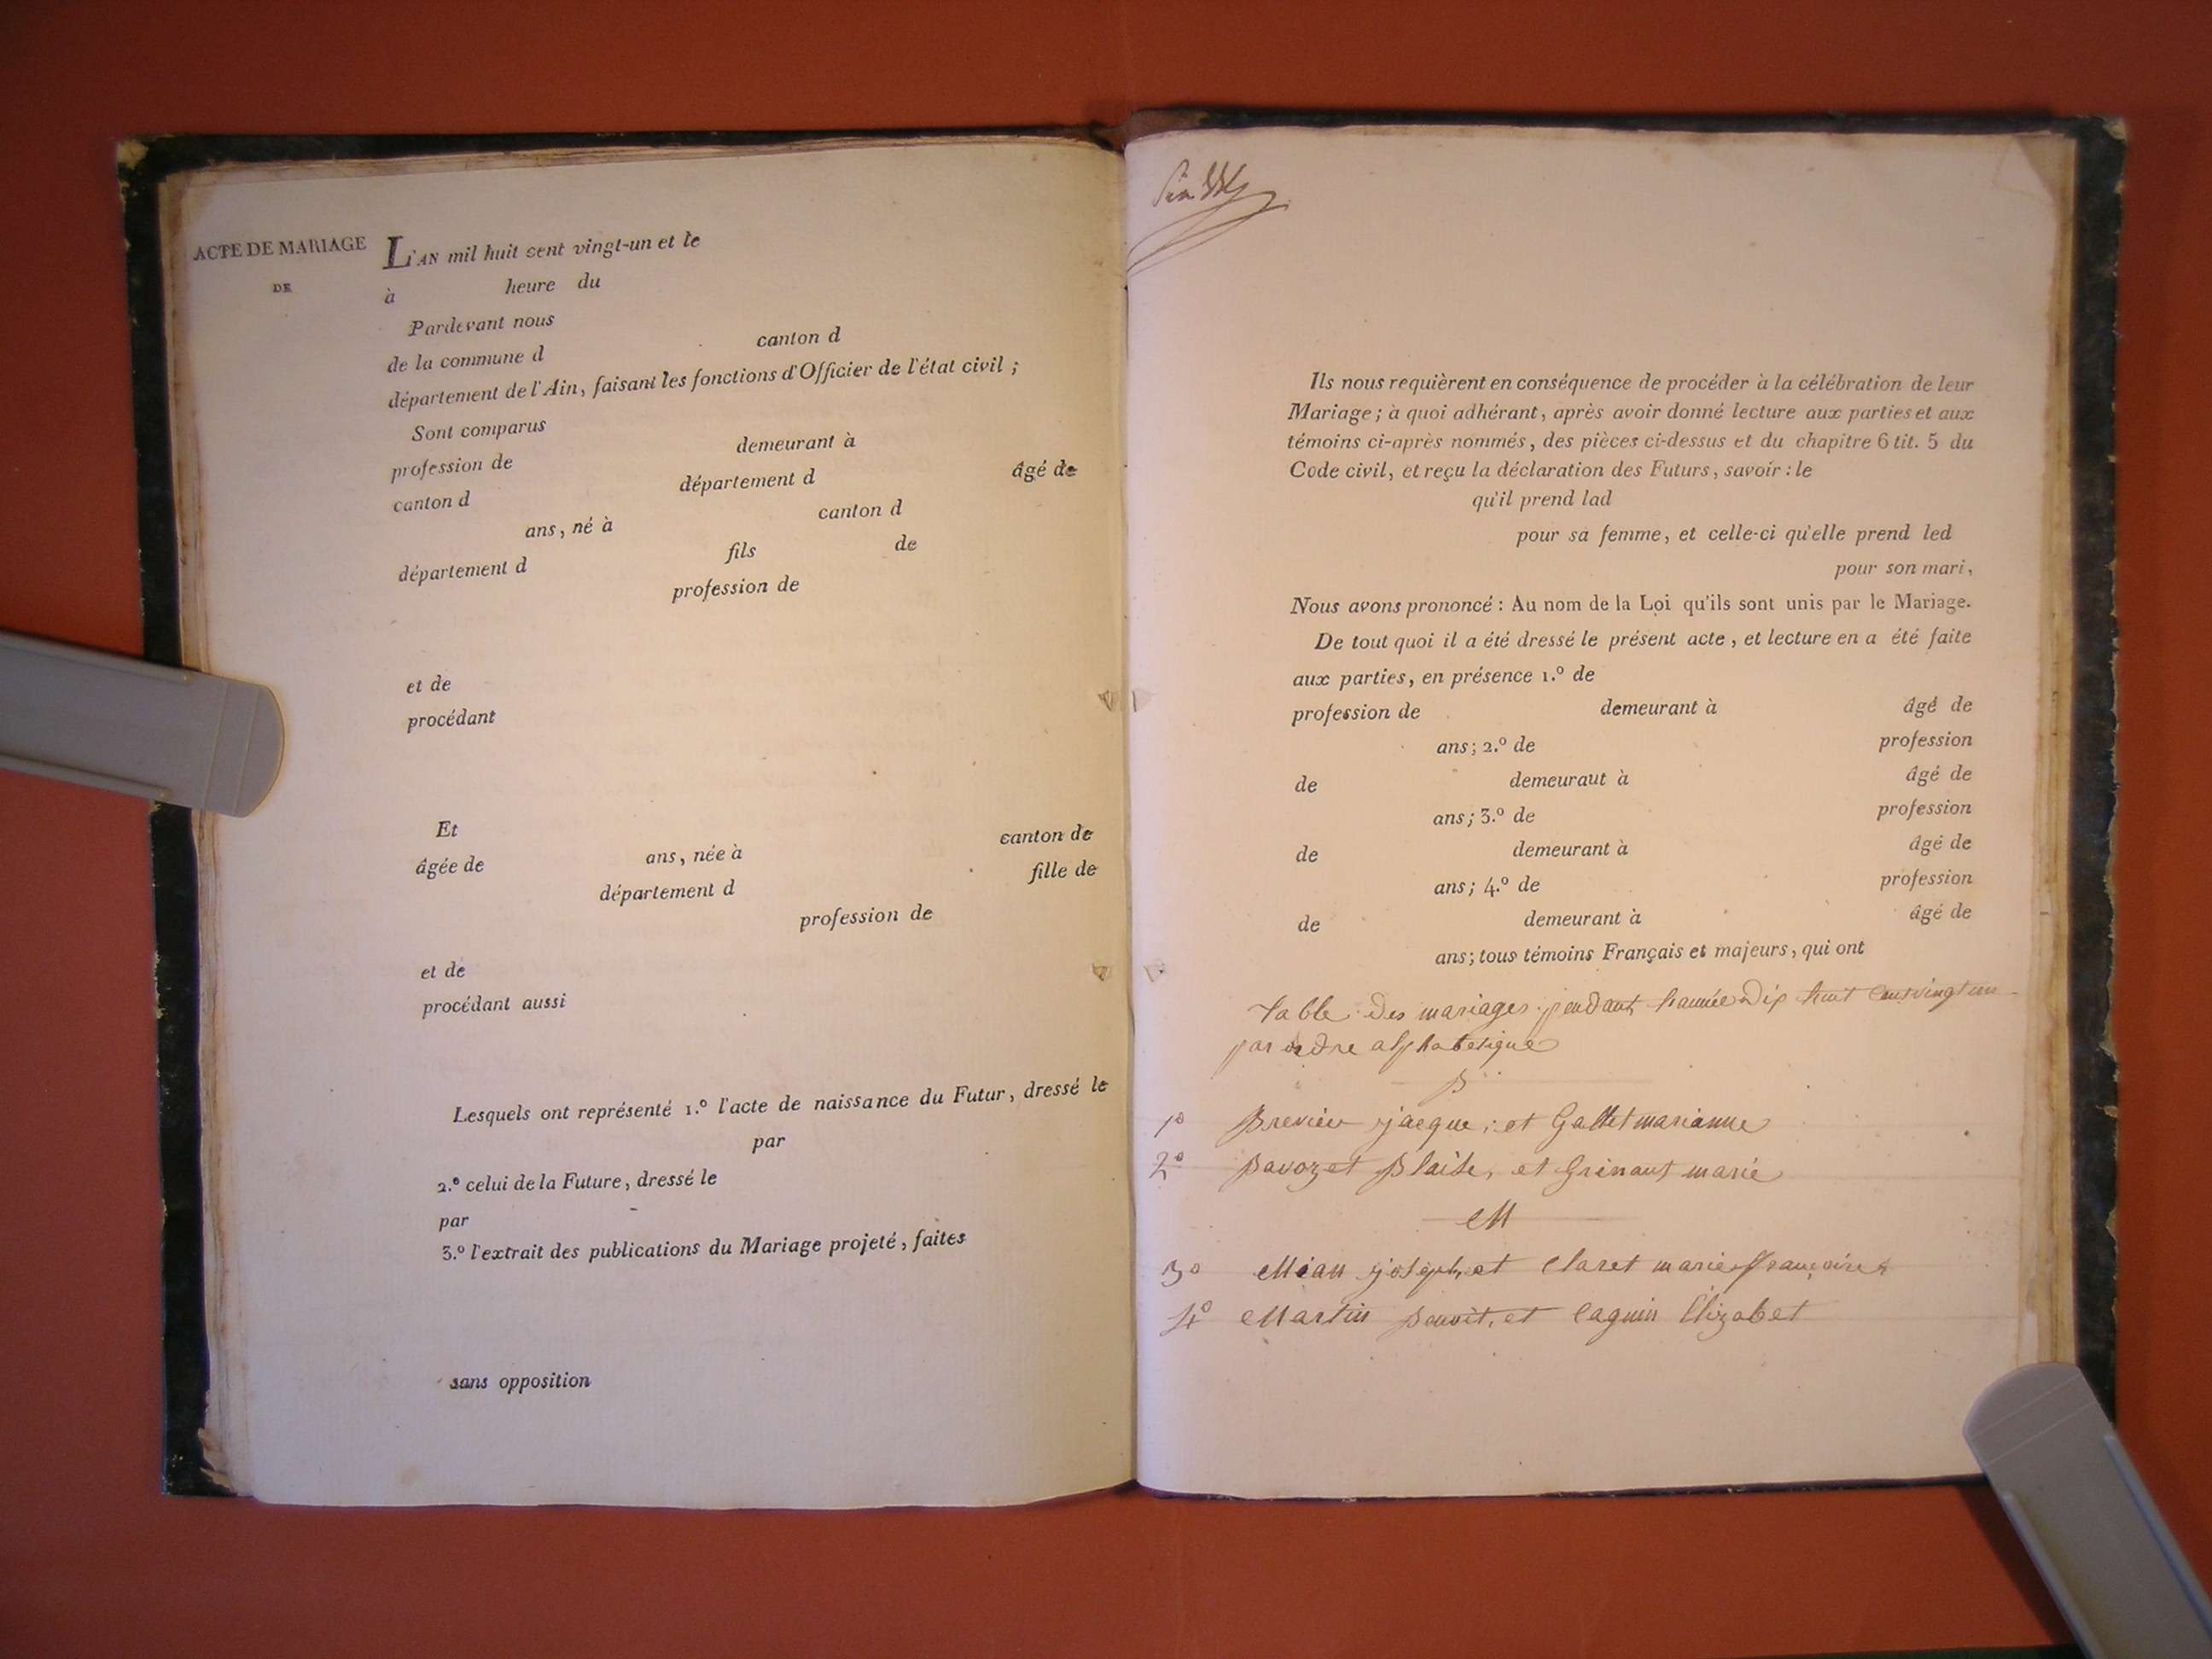 ACTE DE MARIAGE
DE
L'AN mil huit cent vingt-un et le
à heure du
Pardevant nous
de la commune d canton d
département de l'Ain, faisant les fonctions d'Officier de l'état civil ;
Sont comparus
profession de demeurant à
canton d département d âgé de
ans, né à canton d
département d fils de
profession de
et de
procédant
Et
âgée de ans, née à canton de
département d fille de
profession de
et de
procédant aussi
Lesquels ont représenté 1.º l'acte de naissance du Futur, dressé le
par
2.º celui de la Future, dressé le
par
3.º l'extrait des publications du Mariage projeté, faites
sans opposition
Ils nous requièrent en conséquence de procéder à la célébration de leur
Mariage ; à quoi adhérant, après avoir donné lecture aux parties et aux
témoins ci-après nommés, des pièces ci-dessus et du chapitre 6 tit. 5 du
Code civil, et reçu la déclaration des Futurs, savoir : le
qu'il prend lad
pour sa femme, et celle-ci qu'elle prend led
pour son mari,
Nous avons prononcé : Au nom de la Loi qu'ils sont unis par le Mariage.
De tout quoi il a été dressé le présent acte, et lecture en a été faite
aux parties, en présence 1.º de
profession de demeurant à âgé de
ans ; 2.º de profession
de demeuraut à âgé de
ans ; 3.º de profession
de demeurant à âgé de
ans ; 4.º de profession
de demeurant à âgé de
ans ; tous témoins Français et majeurs, qui ont
table des mariages pendant l'année dix huit cent vingt un
par ordre alphabetique
B
1º jacque, et marianne
2º Blaise, et marie
M
3º joseph, et Claret marie françoise
4º Martin Benoit, et Elizabet